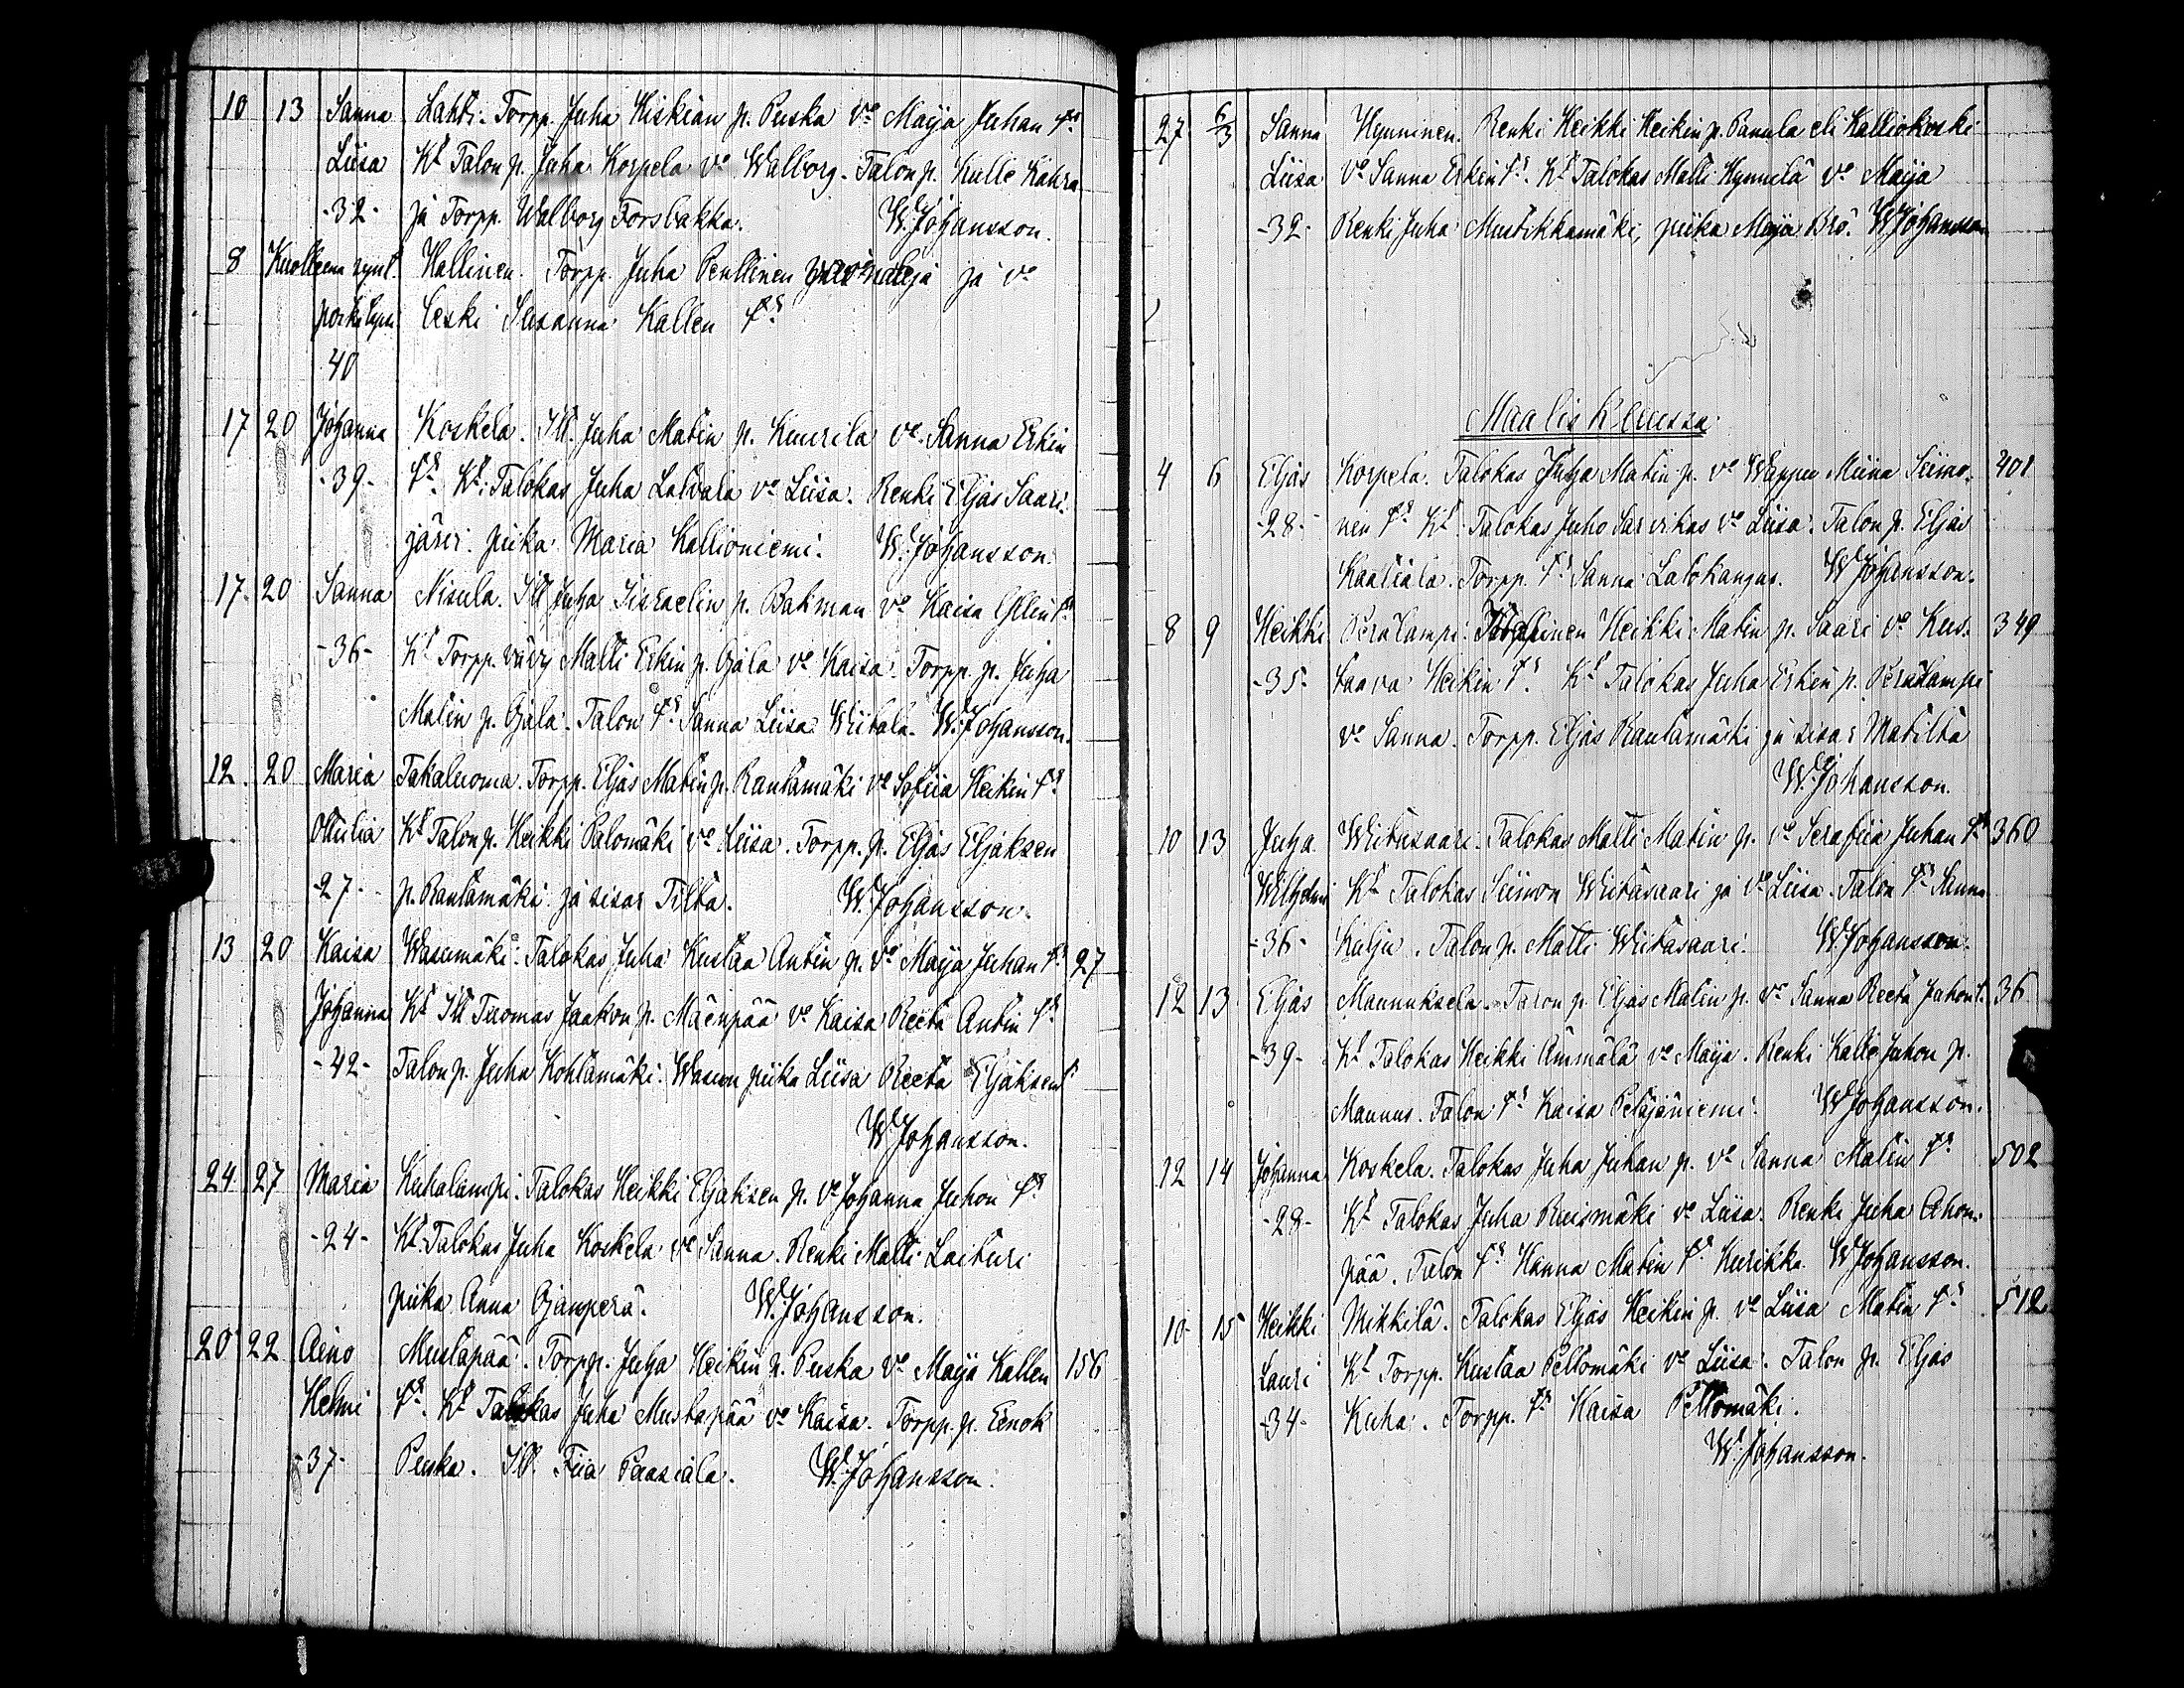 10 13 Sanna Lahti. Torpp. Juha Hiskian p. Puska vo Maija Juhan tr
Liisa Kt Talon p. Juha Korpela vo Walborg. Talon p. Kalle Kahra
-32- ja Torpp. Walborg Forsbakka. W. Johansson.
8 Kuolleena synt. Hallinen. Torpp. Juha Penttinen ja vo
poika leski Susanna Kallen tr
40
17 20 Johanna Koskela. Itl. Juha Matin p. Kuurila vo Sanna Erkin
-39- tr. Kt. Talokas Juha Latvala vo Liisa. Renki Eljas Saari-
järvi. piika Maria Kallioniemi. W. Johansson.
17. 20 Sanna Nisula. Itl Juha Iisraelin p. Batman vo Kaisa tr
-36- Kt Torpp. vävy Matti Erkin p. Ojala vo Kaisa. Torpp. p. Juha
Matin p. Ojala. Talon tr Sanna Liisa Wiitala. W. Johansson.
12. 20 Maria Takaluoma. Torpp. Eljas Matin p. Rantamäki vo Sofiia Heikin tr
Ottiilia Kt Talon p. Heikki Palomäki vo Liisa. Torpp. p. Eljas Eljaksen
-27- p. Rantamäki ja sisar Tilta. W. Johansson.
13 20 Kaisa Wasumäki. Talokas Juha Kustaa Antin p. vo Maija Juhan tr 27
Johanna Kt Itl Tuomas Jaakon p. Mäenpää vo Kaisa Reeta Antin tr
-42- Talon p. Juha Kohtamäki. Wasun piika Liisa Reeta Eljaksen t
W. Johansson.
24 27 Maria Kuhalampi. Talokas Heikki Eljaksen p. vo Johanna Juhon tr
-24- Kt. Talokas Juha Koskela vo Sanna. Renki Matti Laituri
piika Anna Ojanperä. W. Johansson.
20 22 Aino Mustapää. Torpp. Juha Heikin p. Puska vo Maija Kallen 156
Helmi tr. Kt Talokas Juha Mustapää vo Kaisa. Torpp. p. Eenok
-37- Puska. Itl. Fiia Paasiala. W. Johansson.
27. 6/3 Sanna Hynninen. Renki Heikki Heikin p. Panula eli Kalliokoski
Liisa vo Sanna Erkin tr. Kt Talokas Matti Hynnilä vo Maija
-32- Renki Juha Mustikkamäki, piika Maija Bro. W. Johansson
Maaliskuussa.
4 6 Eljas Korpela. Talokas Juha Matin p. vo Wappu Miina Siimo- 401
-28- nen tr Kt. Talokas Juho Sarvikas vo Liisa. Talon p. Eljas
Kaatiala. Torpp. tr Sanna Latokangas. W. Johansson.
8 9 Heikki Perälampi. Heikki Matin p. Saari vo Kus- 349
-35- taava Heikin tr. Kt Talokas Juha Erkin p. Perälampi
vo Sanna. Torpp. Eljas Rantamäki ja sisar Matilta
W. Johansson.
10 13 Juha Wiitasaari. Talokas Matti Matin p. vo Serafiia Juhan tr 360
Wilhelmi Kt Talokas Siimon Wiitasaari ja vo Liisa. Talon tr Sanna
-36- Kulju. Talon p. Matti Wiitasaari. W. Johansson.
12 13 Eljas Mannuksela. Talon p. Eljas Matin p. vo Sanna Reeta Juhon t. 36
-39- Kt Talokas Heikki Ämmälä vo Maija. Renki Kalle Juhon p.
Mannus. Talon tr Kaisa Petäjäniemi. W. Johansson.
12 14 Johanna Koskela. Talokas Juha Juhan p. vo Sanna Matin tr 502
-28- Kt Talokas Juha Ruismäki vo Liisa. Renki Juha Ahon-
pää. Talon tr Hanna Matin tr Kurikka W. Johansson.
10- 15 Heikki Mikkilä. Talokas Eljas Heikin p. vo Liisa Matin tr 512
Lauri Kt Torpp. Kustaa Peltomäki vo Liisa. Talon p. Eljas
-34- Kuha. Torpp. tr Kaisa Peltomäki.
W. Johansson.